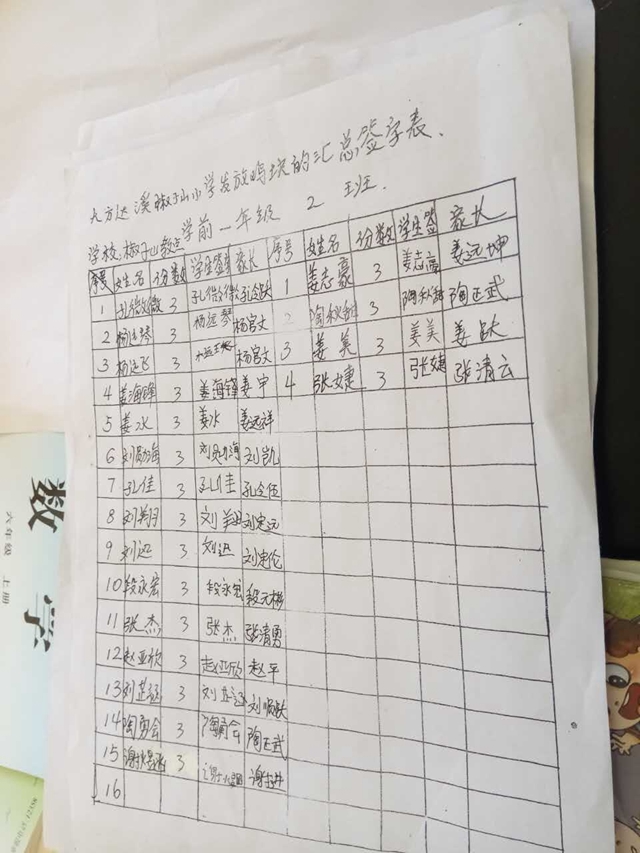 大方达溪椒子山小学发放鸡块的汇总签字表、
学校:椒子山教点 学前一年级 2 班.
序号 姓名 份数 学生签 家长 序号 姓名 份数 学生签 家长
1 孔微微 3 孔微微 孔令跃 1 姜志豪 3 姜志豪 姜远坤
2 杨远琴 3 杨远琴 杨官文 2 陶秋甜 3 陶秋甜 陶正武
3 杨远飞 3 杨官文 3 姜美 3 姜美 姜跃
4 姜海锋 3 姜海锋 姜宇 4 张婕 3 张婕 张清云
5 姜水 3 姜水 姜远祥
6 3 刘凯
7 孔佳 3 孔佳 孔令伍
8 刘翔 3 刘翔 刘定远
9 刘迟 3 刘迟 刘定伦
10 段永宏 3 段永宏 段元彬
11 张杰 3 张杰 张清勇
12 赵亚欣 3 赵亚欣 赵平
13 刘芷涵 3 刘芷涵 刘顺跃
14 陶勇会 3 陶勇会 陶正武
15 谢煜涵 3 谢进
16
数学
六年级 上册